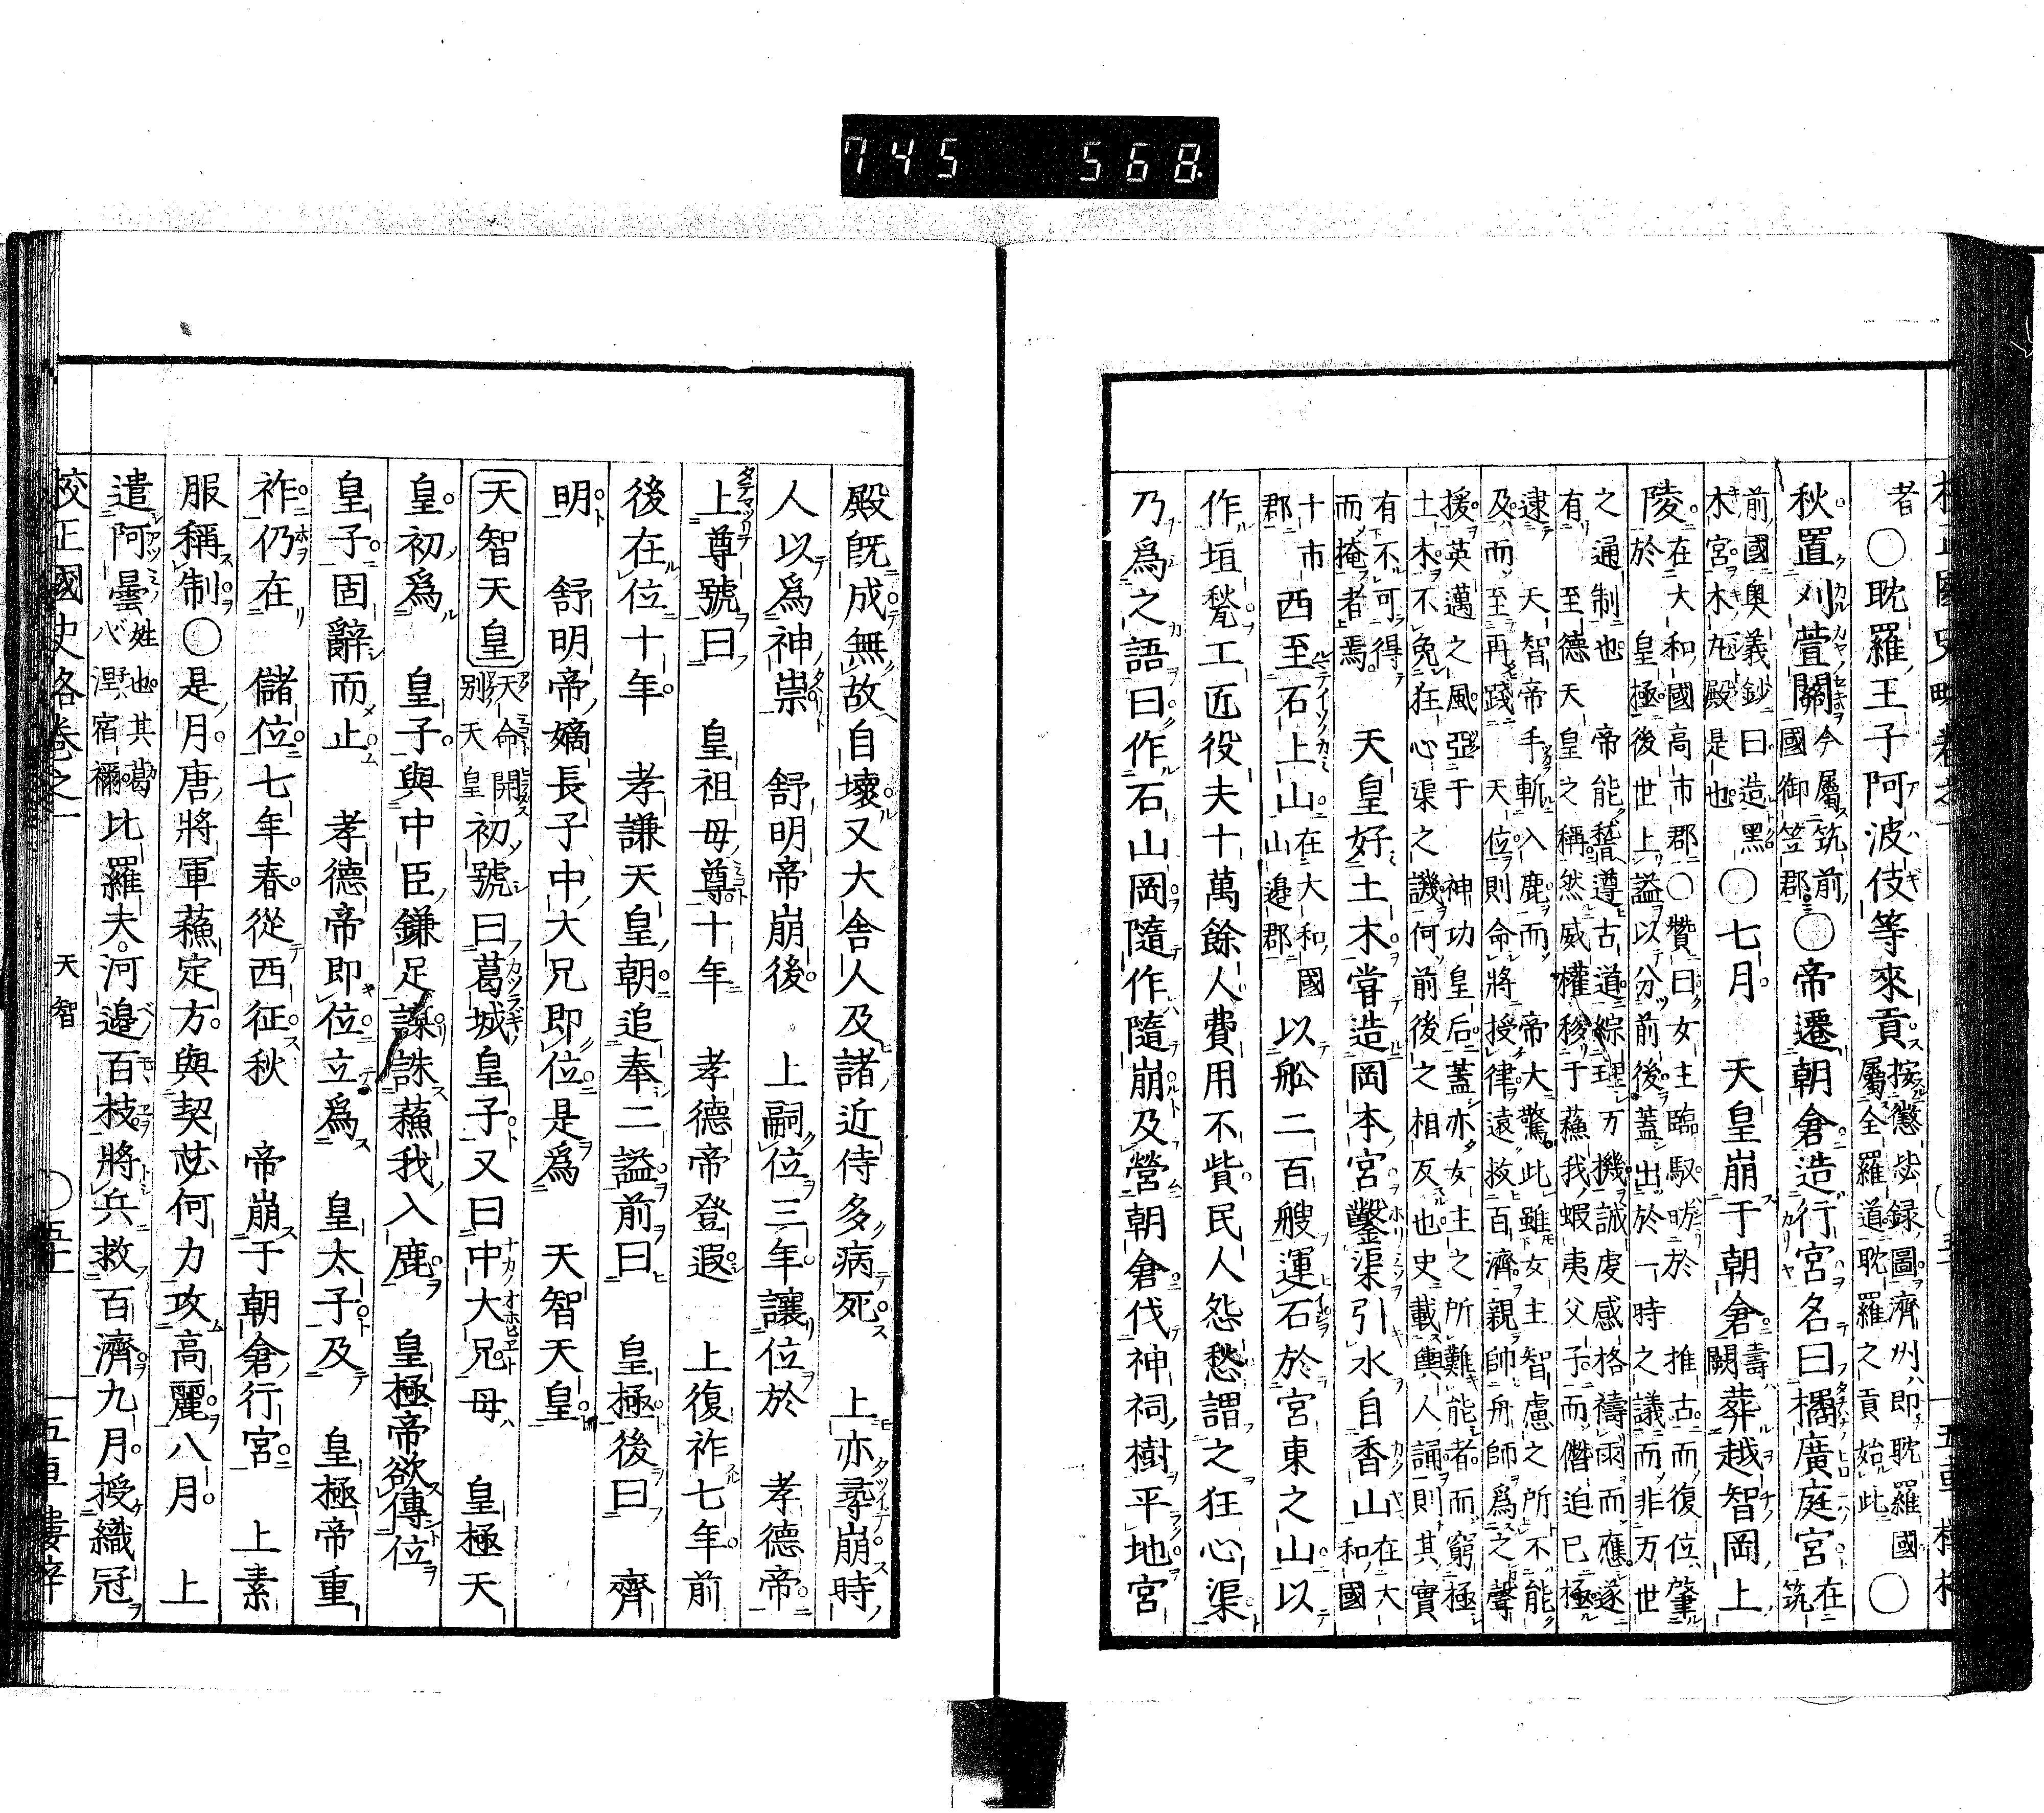 745 568
者○耽羅王子阿波伎等來貢按懲毖録圖濟州即耽羅國屬全羅道耽羅之貢始此○
秋置刈萱關今屬筑前國御笠郡○帝遷朝倉造行宮名曰橘廣庭宮在筑
前國奥義鈔曰造黑木宮木丸殿是也○七月 天皇崩于朝倉壽闕葬越智岡上
陵在大和國高市郡○贊曰女主臨馭昉於 推古而復位肇於 皇極後世上謚以分前後蓋出於一時之議而非万世
之通制也 帝能稽遵古道綜理万機誠虔感格禱雨而應遂有 至德天皇之稱然威權移于蘇我蝦夷父子而僭迫已極
逮 天智帝手斬入鹿而 帝大驚此雖女主智慮之所不能及而至再踐 天位則命將授律遠救百濟親帥舟師爲之聲
援英邁之風亞于 神功皇后蓋亦女主之所難能者而窮極土木不免狂心渠之譏何前後之相反也史載輿人誦則其實
有不可得而掩者焉 天皇好土木嘗造岡本宮鑿渠引水自香山在大和國
十市郡 西至石上山在大和國山邉郡 以舩二百艘運石於宮東之山以
作垣甃工匠役夫十萬餘人費用不貲民人怨愁謂之狂心渠
乃爲之語曰作石山岡隨作隨崩及營朝倉伐神祠樹平地宮
殿既成無故自壞又大舎人及諸近侍多病死 上亦尋崩時
人以爲神祟 舒明帝崩後 上嗣位三年讓位於 孝德帝
上尊號曰 皇祖母尊十年 孝德帝登遐 上復祚七年前
後在位十年 孝謙天皇朝追奉二謚前曰 皇極後曰 齊
明 舒明帝嫡長子中大兄即位是爲 天智天皇
天智天皇天命開別天皇初號曰葛城皇子又曰中大兄母 皇極天
皇初爲 皇子與中臣鎌足謀誅蘇我入鹿 皇極帝欲傳位
皇子固辭而止 孝德帝即位立爲 皇太子及 皇極帝重
祚仍在 儲位七年春從西征秋 帝崩于朝倉行宮 上素
服稱制○是月唐將軍蘓定方與契苾何力攻高麗八月 上
遣阿曇姓也其葛比羅夫河邉百枝將兵救百濟九月授織冠
校正國史畧卷之一 天智